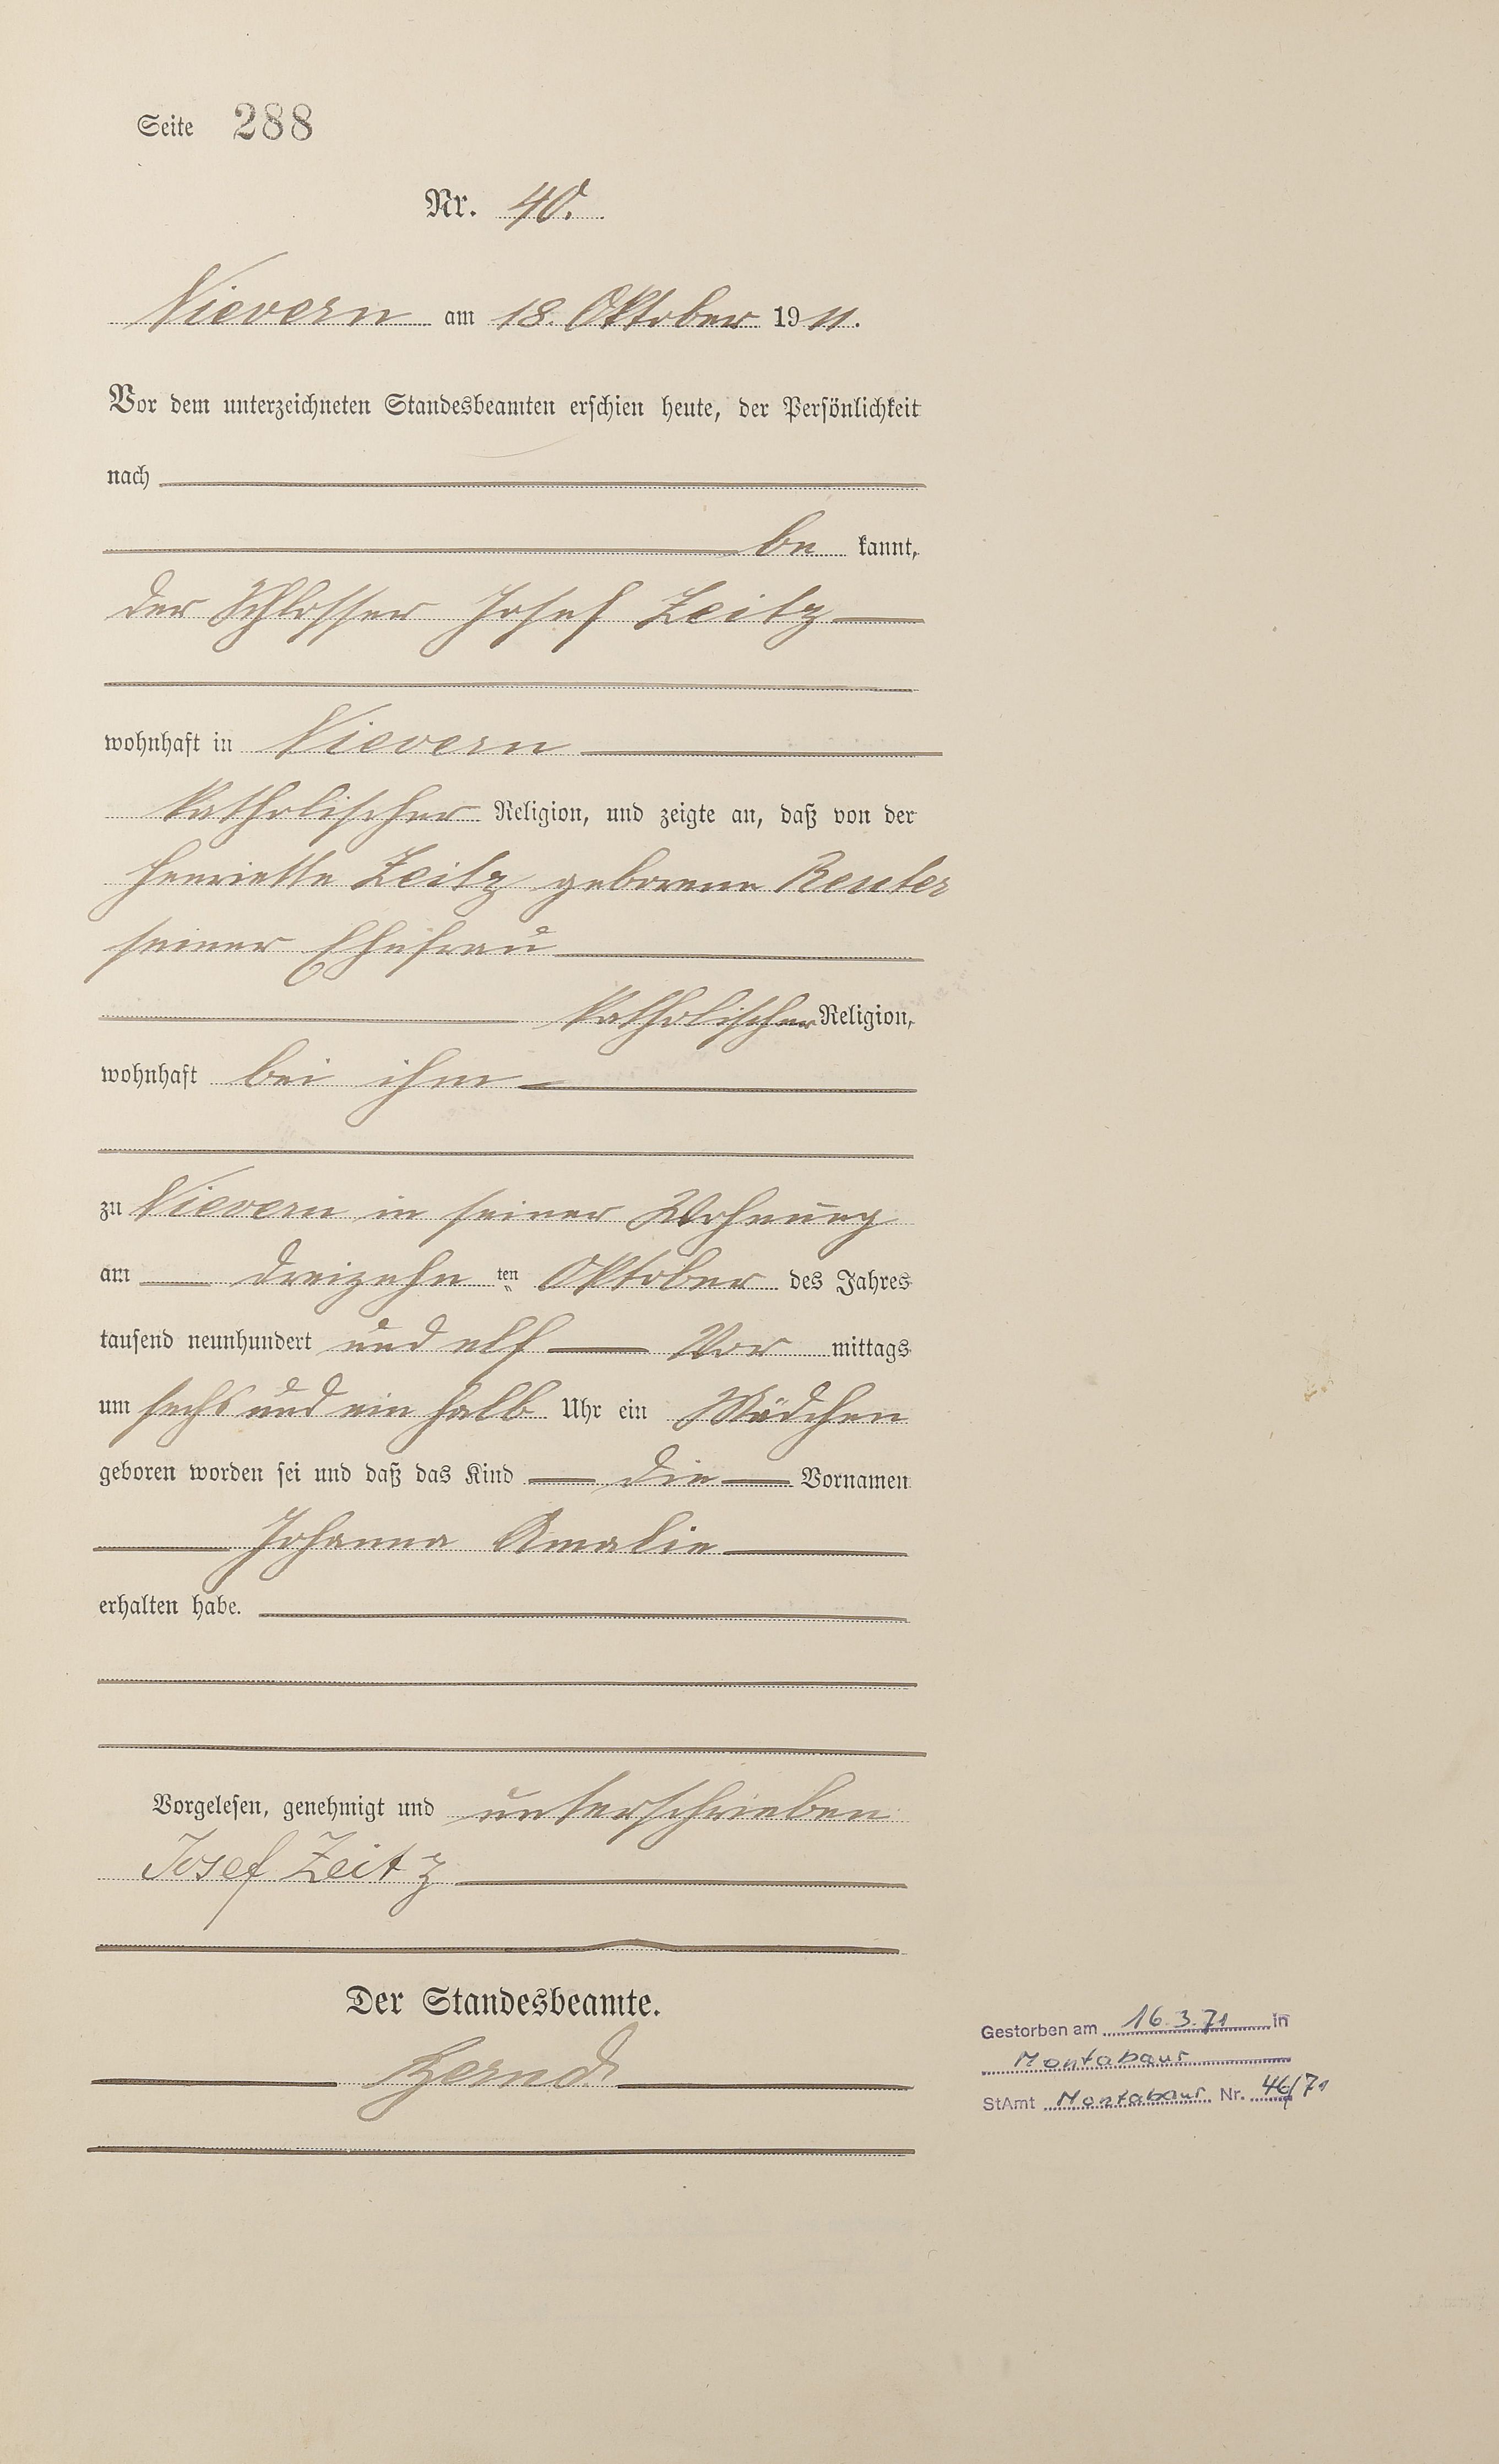 Seite 288
Nr. 40.
Nievern am 18. Oktober 1911.
Vor dem unterzeichneten Standesbeamten erschien heute, der Persönlichkeit
nach
be kannt,
der Schlosser Josef Zeitz
wohnhaft in Nievern
katholischer Religion, und zeigte an, daß von der
Henriette Zeitz geborene Reuter
seiner Ehefrau
katholischer Religion,
wohnhaft bei ihm
zu Nievern in seiner Wohnung
am dreizehn ten Oktober des Jahres
tausend neunhundert und elf Vor mittags
um sechs und ein halb Uhr ein Mädchen
geboren worden sei und daß das Kind die Vornamen
Johanna Amalie
erhalten habe.
Vorgelesen, genehmigt und unterschrieben
Josef Zeitz
Der Standesbeamte.
Gestorben am 16.3.71 in
Montabaur
StAmt Montabaur Nr. 46/71